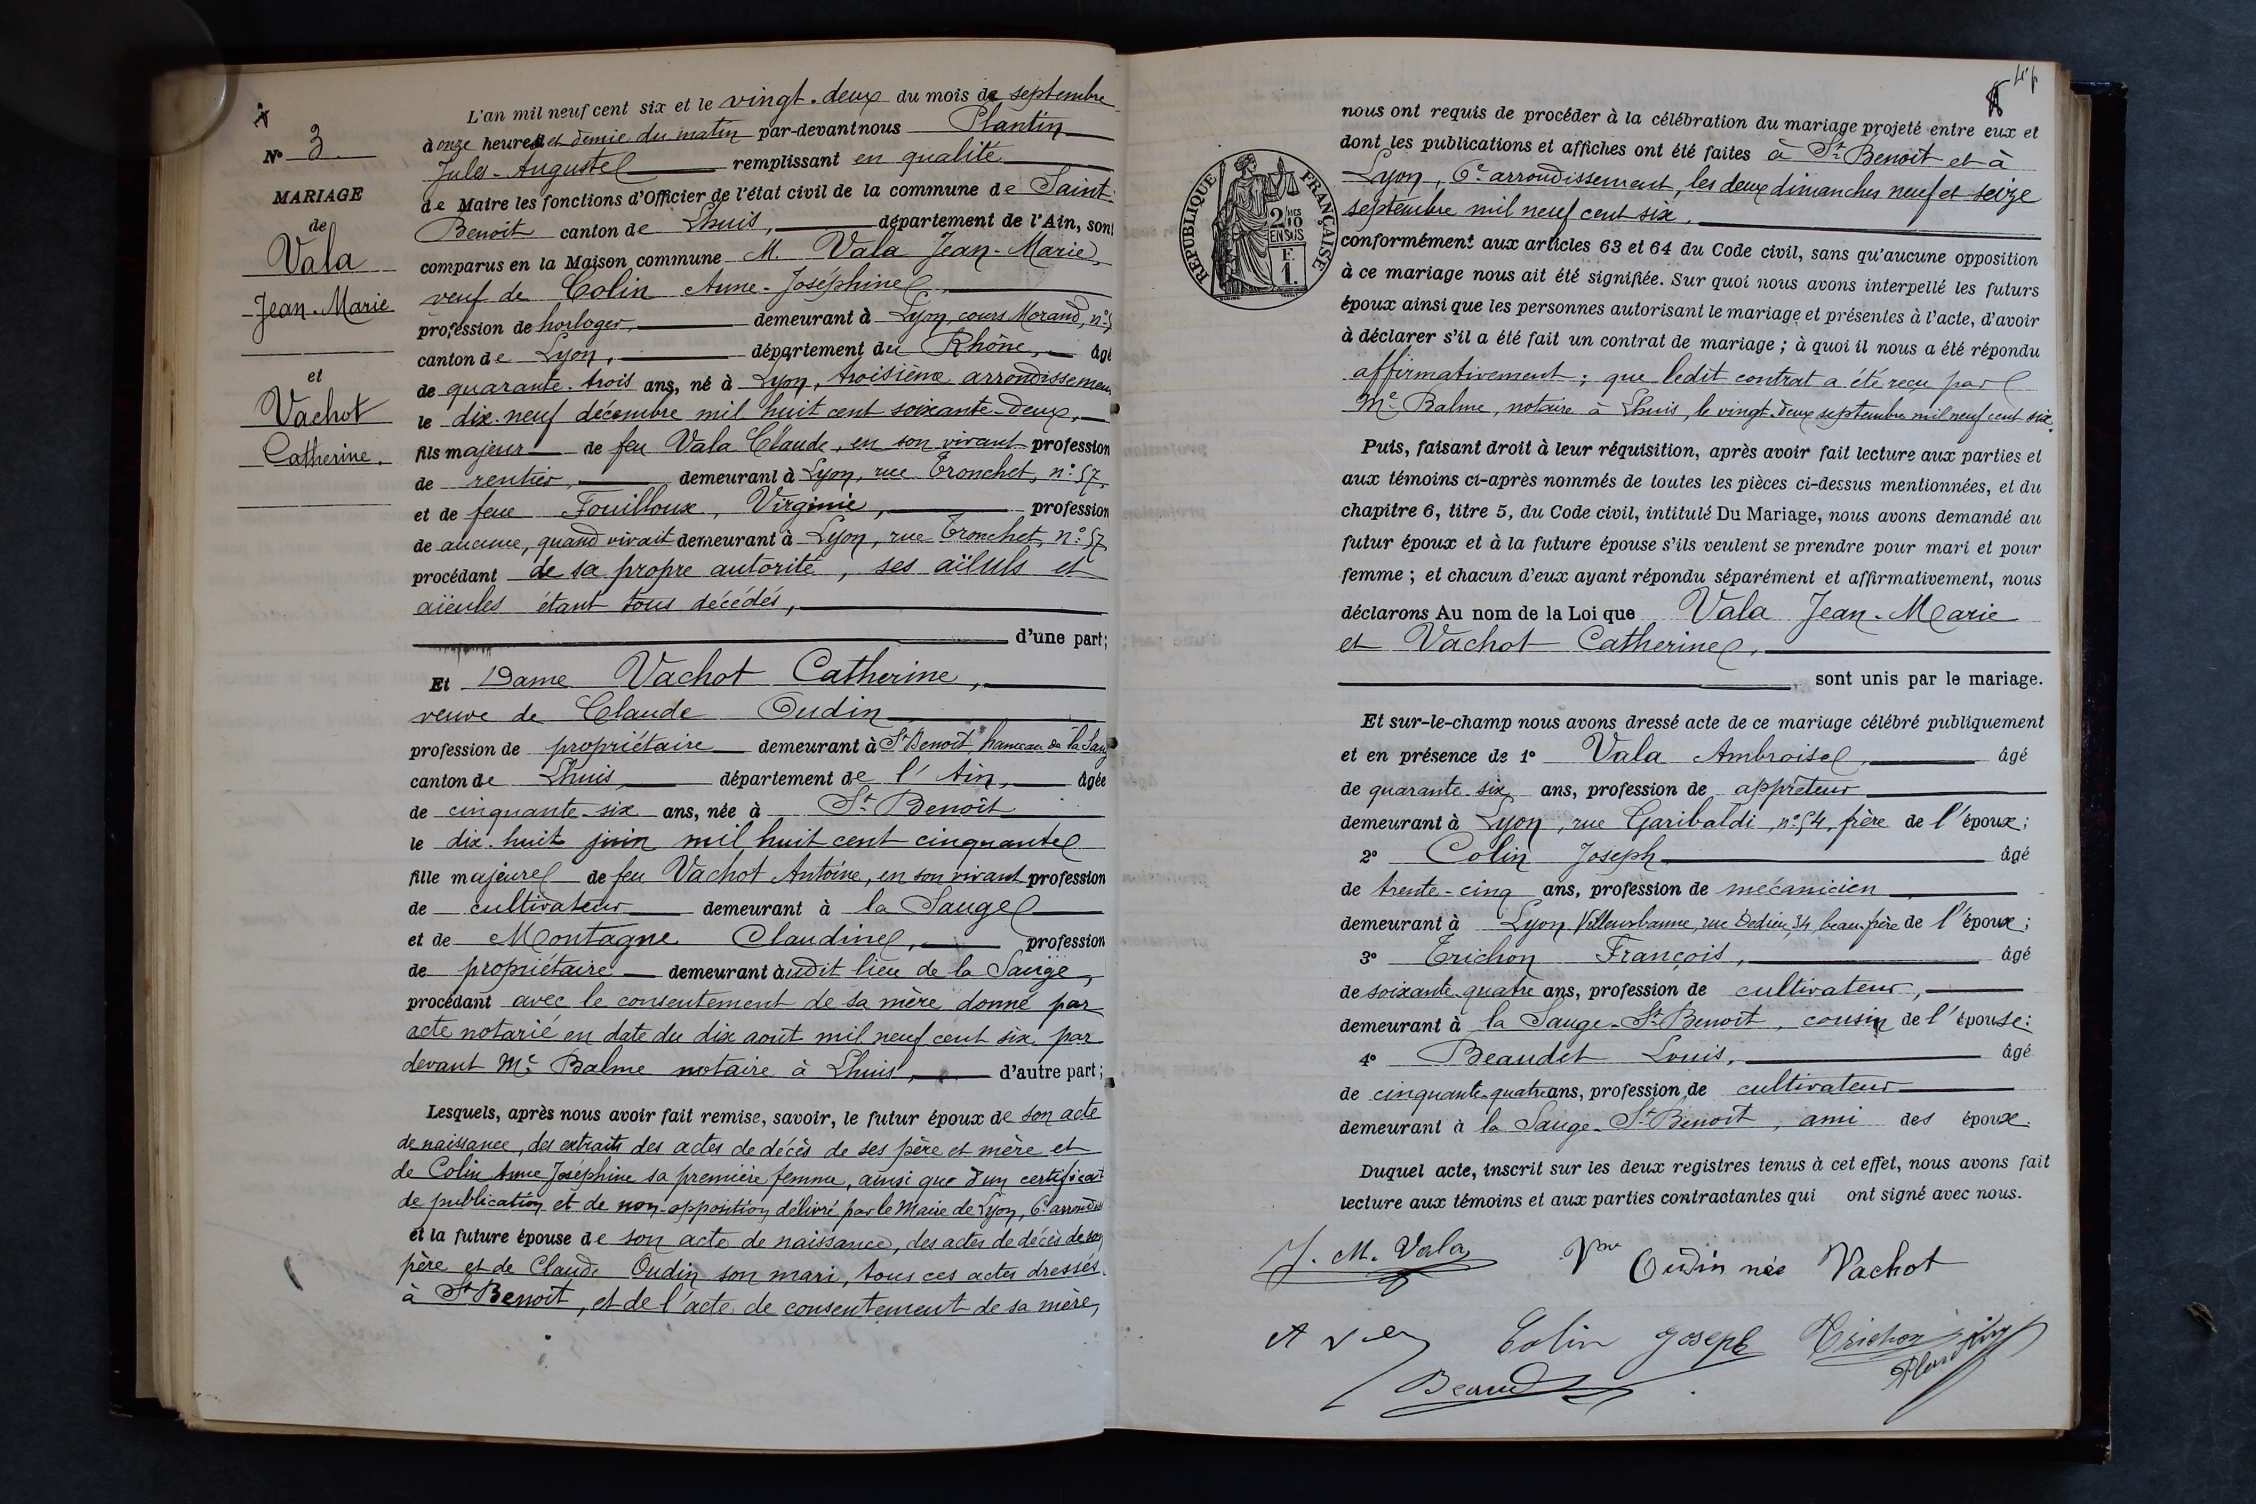 N° 3
MARIAGE
de
Vala
Jean-Marie
et
Vachot
Catherine.
L'an mil neuf cent six et le vingt-deux du mois de septembre
à onze heures et demie du matin par-devant nous Plantin
Jules-Auguste remplissant en qualité
de Maire les fonctions d'Officier de l'état civil de la commune de Saint-
Benoit canton de Lhuis, département de l'Ain, sont
comparus en la Maison commune M. Vala Jean-Marie
veuf de Colin Anne-Joséphine,
profession de horloger, demeurant à Lyon, cours Morand, n°
canton de Lyon, département du Rhône, âgé
de quarante-trois ans, né à Lyon, troisième arrondissement
le dix-neuf décembre mil huit cent soixante-deux,
fils majeur de feu Vala Claude, en son vivant profession
de rentier, demeurant à Lyon, rue Tronchet, n° 57,
et de feue Fouilloux, Virginie, profession
de aucune, quand vivait demeurant à Lyon, rue Tronchet, n° 57
procédant de sa propre autorité, ses aïeuls et
aïeules étant tous décédés,
d'une part;
Et Dame Vachot Catherine,
veuve de Claude Oudin
profession de propriétaire demeurant à St Benoit hameau de la Sauge
canton de Lhuis, département de l'Ain, âgée
de cinquante-six ans, née à St Benoit
le dix-huit juin mil huit cent cinquante
fille majeure de feu Vachot Antoine, en son vivant profession
de cultivateur demeurant à la Sauge
et de Montagne Claudine, profession
de propriétaire demeurant audit lieu de la Sauge,
procédant avec le consentement de sa mère donné par
acte notarié en date du dix août mil neuf cent six par
devant Me Balme notaire à Lhuis, d'autre part;
Lesquels, après nous avoir fait remise, savoir, le futur époux de son acte
de naissance, des extraits des actes de décès de ses père et mère et
de Colin Anne Joséphine sa première femme, ainsi que d'un certificat
de publication et de non-opposition délivré par le Maire de Lyon, 6e arrondt
et la future épouse de son acte de naissance, des actes de décès de son
père et de Claude Oudin son mari, tous ces actes dressés
à St Benoit, et de l'acte de consentement de sa mère,
RÉPUBLIQUE FRANÇAISE
2/10
EN SUS
F.
1.
nous ont requis de procéder à la célébration du mariage projeté entre eux et
dont les publications et affiches ont été faites à St Benoit et à
Lyon, 6e arrondissement, les deux dimanches neuf et seize
septembre mil neuf cent six.
conformément aux articles 63 et 64 du Code civil, sans qu'aucune opposition
à ce mariage nous ait été signifiée. Sur quoi nous avons interpellé les futurs
époux ainsi que les personnes autorisant le mariage et présentes à l'acte, d'avoir
à déclarer s'il a été fait un contrat de mariage; à quoi il nous a été répondu
affirmativement; que ledit contrat a été reçu par
Me Balme, notaire à Lhuis, le vingt-deux septembre mil neuf cent six.
Puis, faisant droit à leur réquisition, après avoir fait lecture aux parties et
aux témoins ci-après nommés de toutes les pièces ci-dessus mentionnées, et du
chapitre 6, titre 5, du Code civil, intitulé Du Mariage, nous avons demandé au
futur époux et à la future épouse s'ils veulent se prendre pour mari et pour
femme; et chacun d'eux ayant répondu séparément et affirmativement, nous
déclarons Au nom de la Loi que Vala Jean-Marie
et Vachot Catherine,
sont unis par le mariage.
Et sur-le-champ nous avons dressé acte de ce mariage célébré publiquement
et en présence de 1° Vala Ambroise, âgé
de quarante-six ans, profession de apprêteur
demeurant à Lyon, rue Garibaldi, n° 54, frère de l'époux;
2° Colin Joseph âgé
de trente-cinq ans, profession de mécanicien
demeurant à Lyon Villeurbanne, rue Dedieu, 34, beau-frère de l'époux;
3° Trichon François, âgé
de soixante-quatre ans, profession de cultivateur,
demeurant à la Sauge-St Benoit, cousin de l'épouse:
4° Beaudet Louis, âgé
de cinquante-quatre ans, profession de cultivateur
demeurant à la Sauge-St Benoit, ami des époux.
Duquel acte, inscrit sur les deux registres tenus à cet effet, nous avons fait
lecture aux témoins et aux parties contractantes qui ont signé avec nous.
J. M. Vala Vve Oudin née Vachot
Colin Joseph Trichon